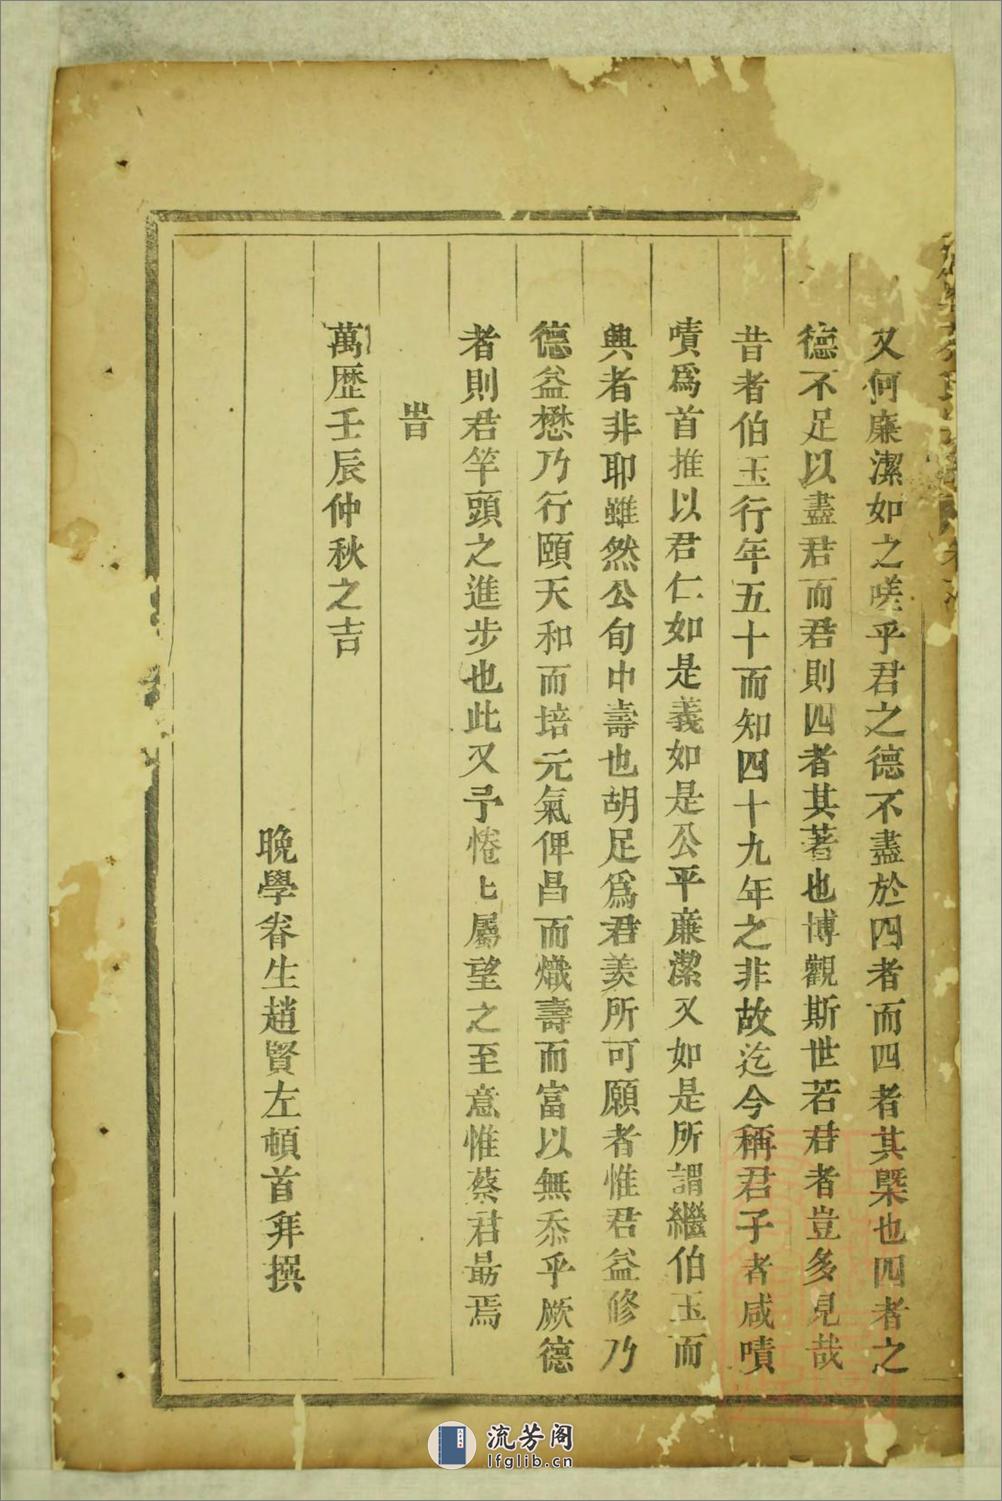 又何廉潔如之嗟乎君之德不盡於四者而四者其槩也四者之
德不足以盡君而君則四者其著也博觀斯世若君者豈多見哉
昔者伯玉行年五十而知四十九年之非故迄今稱君子者咸嘖
嘖爲首推以君仁如是義如是公平廉潔又如是所謂繼伯玉而
興者非耶雖然公旬中壽也胡足爲君羨所可願者惟君益修乃
德益懋乃行頤天和而培元氣俾昌而熾壽而富以無忝乎厥德
者則君竿頭之進步也此又予惓匕屬望之至意惟蔡君最焉
旹
萬歷壬辰仲秋之吉
晚學眷生趙賢左頓首拜撰
流芳阁
lfglib.cn